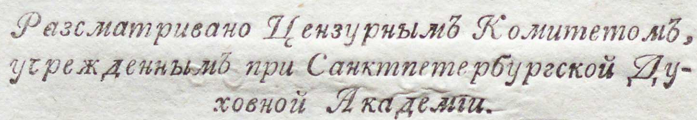 Разсматривано Цензурнымъ Комитетомъ,
учрежденнымъ при Санктпетербургской Ду-
ховной Академіи.